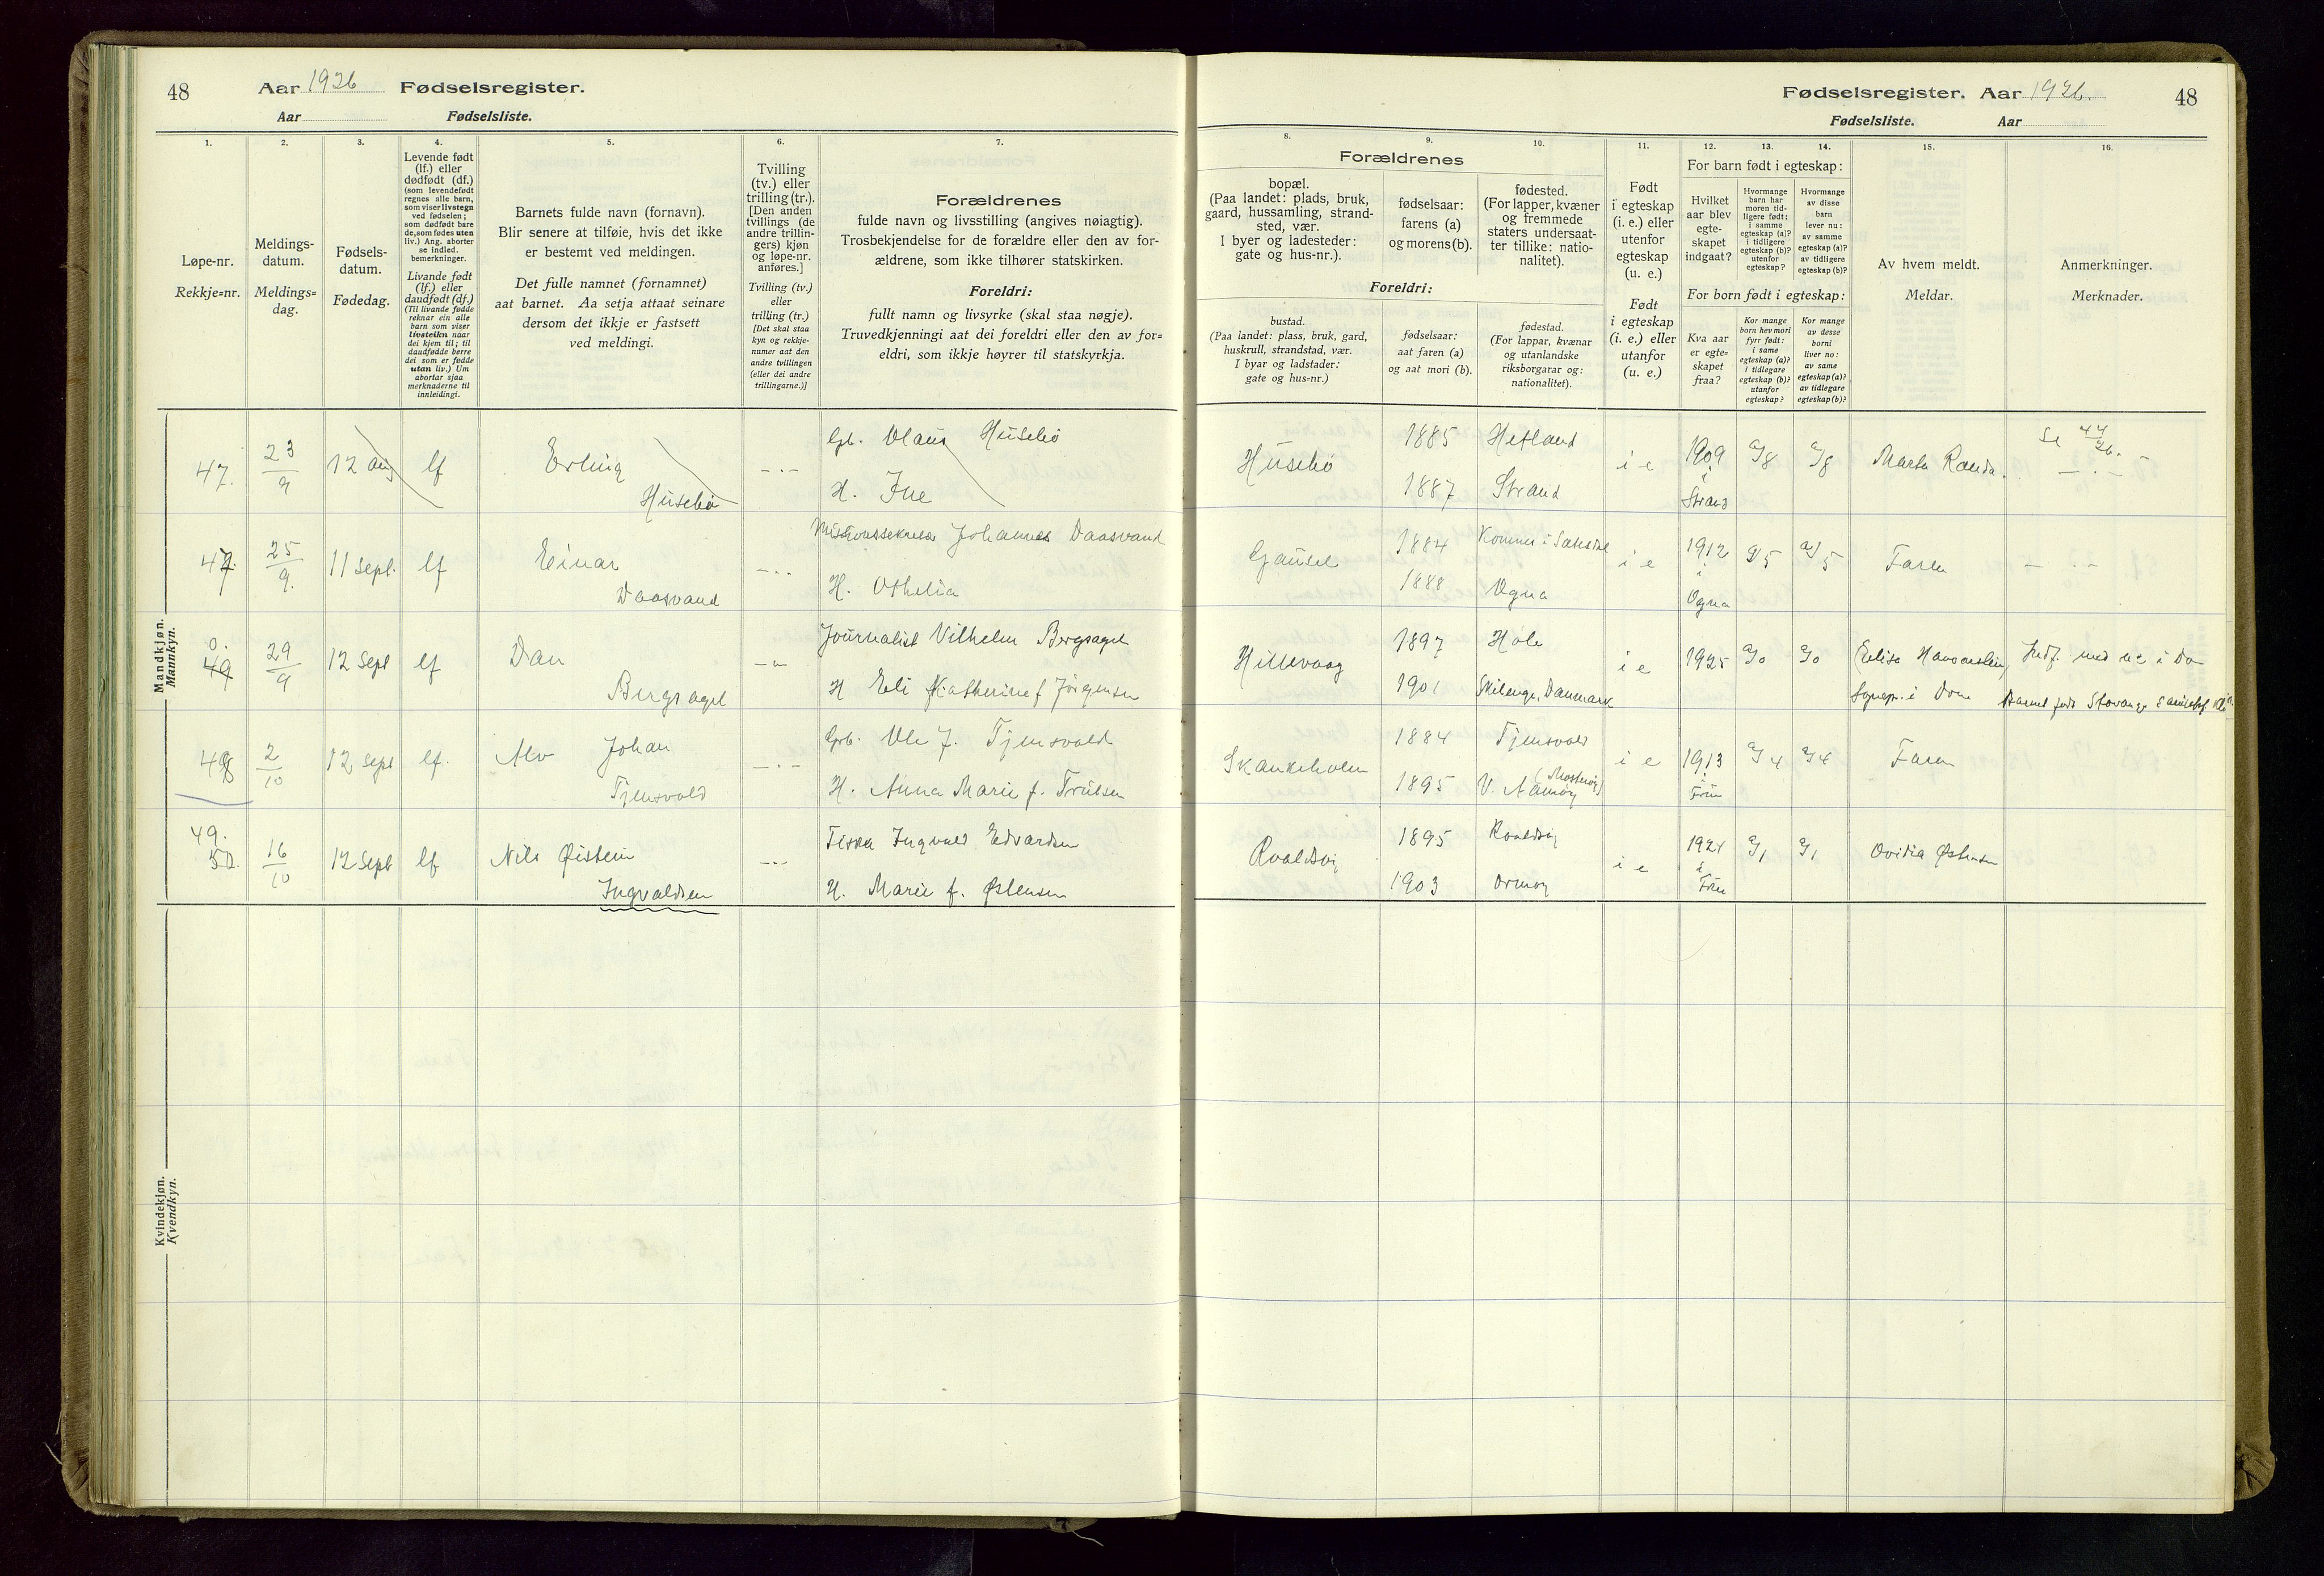 48
Aar 1926 Fødselsregister.
Aar Fødselsliste.
1.
Løpe-nr.
Rekkje-nr.
2.
Meldings-
datum.
Meldings-
dag.
3.
Fødsels-
datum.
Fødedag.
4.
Levende født
(lf.) eller
dødfødt (df.)
(som levendefødt
regnes alle barn,
som viser livstegn
ved fødselen;
som dødfødt bare
de, som fødes uten
liv.) Ang. aborter
se indled.
bemerkninger.
Livande født
(lf.) eller
daudfødt (df.)
(Til livande fødde
reknar ein alle
barn som viser
livsteikn naar
dei kjem til; til
daudfødde berre
dei som er fødde
utan liv.) Um
abortar sjaa
merknaderne til
innleidingi.
5.
Barnets fulde navn (fornavn).
Blir senere at tilføie, hvis det ikke
er bestemt ved meldingen.
Det fulle namnet (fornamnet)
aat barnet. Aa setja attaat seinare
dersom det ikkje er fastsett
ved meldingi.
6.
Tvilling
(tv.) eller
trilling (tr.).
[Den anden
tvillings (de
andre trillin-
gers) kjøn
og løpe-nr.
anføres.]
Tvilling (tv.)
eller
trilling (tr.)
[Det skal staa
kyn og rekkje-
numer aat den
andre tvillingen
(eller dei andre
trillingarne.)]
7.
Forældrenes
fulde navn og livsstilling (angives nøiagtig).
Trosbekjendelse for de forældre eller den av for-
ældrene, som ikke tilhører statskirken.
Foreldri:
fullt namn og livsyrke (skal staa nøgje).
Truvedkjenningi aat dei foreldri eller den av for-
eldri, som ikkje høyrer til statskyrkja.
Mandkjøn.
Mannkyn.
47. 23/9 12 aug lf Erling Husebø Gb. Olaus Husebø
H. Ine
47. 25/9. 11 sept. lf Einar Daasvand Missionssekretær Johannes Daasvand
H. Othelia
0.
49 29/9 12 sept lf Dan Bergsagel Journalist Vilhelm Bergsagel
H Eli Katherine f Jørgensen
48 2/10 12 sept lf. Alv Johan Tjensvold Gb. Ole J. Tjensvold
H. Anna Marie f. Truelsen
49.
50. 16/10 12 sept lf Nils Øistein Ingvaldsen Fisker Ingvald Edvardsen
H. Marie f. Østensen
Kvindekjøn.
Kvendkyn.
Fødselsregister. Aar 1926. 48
Fødselsliste. Aar
8.
Forældrenes
bopæl.
(Paa landet: plads, bruk,
gaard, hussamling, strand-
sted, vær.
I byer og ladesteder:
gate og hus-nr.).
Foreldri:
bustad.
(Paa landet: plass, bruk, gard,
huskrull, strandstad, vær.
I byar og ladstader:
gate og hus-nr.)
9.
fødselsaar:
farens (a)
og morens (b).
fødselsaar:
aat faren (a)
og aat mori (b).
10.
fødested.
(For lapper, kvæner
og fremmede
staters undersaat-
ter tillike: natio-
nalitet).
fødestad.
(For lappar, kvænar
og utanlandske
riksborgarar og:
nationalitet).
11.
Født
i egteskap
(i. e.) eller
utenfor
egteskap
(u. e.)
Født
i egteskap
(i. e.) eller
utanfor
(u. e.)
For barn født i egteskap:
12.
Hvilket
aar blev
egte-
skapet
indgaat?
13.
Hvormange
barn har
moren tid-
ligere født:
i samme
egteskap (a)?
i tidligere
egteskap (b)?
utenfor
egteskap?
14.
Hvormange
av disse
barn
lever nu:
av samme
egteskap (a)?
av tidligere
egteskap (b)?
For born født i egteskap:
Kva aar
er egte-
skapet
fraa?
Kor mange
born hev mori
fyrr født:
i same
egteskap (a)?
i tidlegare
egteskap (b)?
utanfor
egteskap?
Kor mange
av desse
borni
liver no:
av same
egteskap (a)?
av tidlegare
egteskap (b)?
15.
Av hvem meldt.
Meldar.
16.
Anmerkninger.
Merknader.
Husebø 1885 Hetland i e 1909 i Strand a/8 a/8 Marta Randa. Se 44/26.
1887 Strand
Gausel 1884 i e 1912 i Ogna a/5 a/5 Faren
1888 Ogna
Hillevaag 1897 Høle i e 1925 a/0 a/0 Indf. med i Dom
1901 Danmark Sognepr. i Dom
Skankeholen 1884 Tjensvold i e 1913 i Frue a/4 a/4 Faren
1895 V. Aamøy (Mosterøy)
Roaldsøy 1895 Roaldsøy i e 1924 i Frue a/1 a/1 Ovidia Østensen
1903 Ormøy